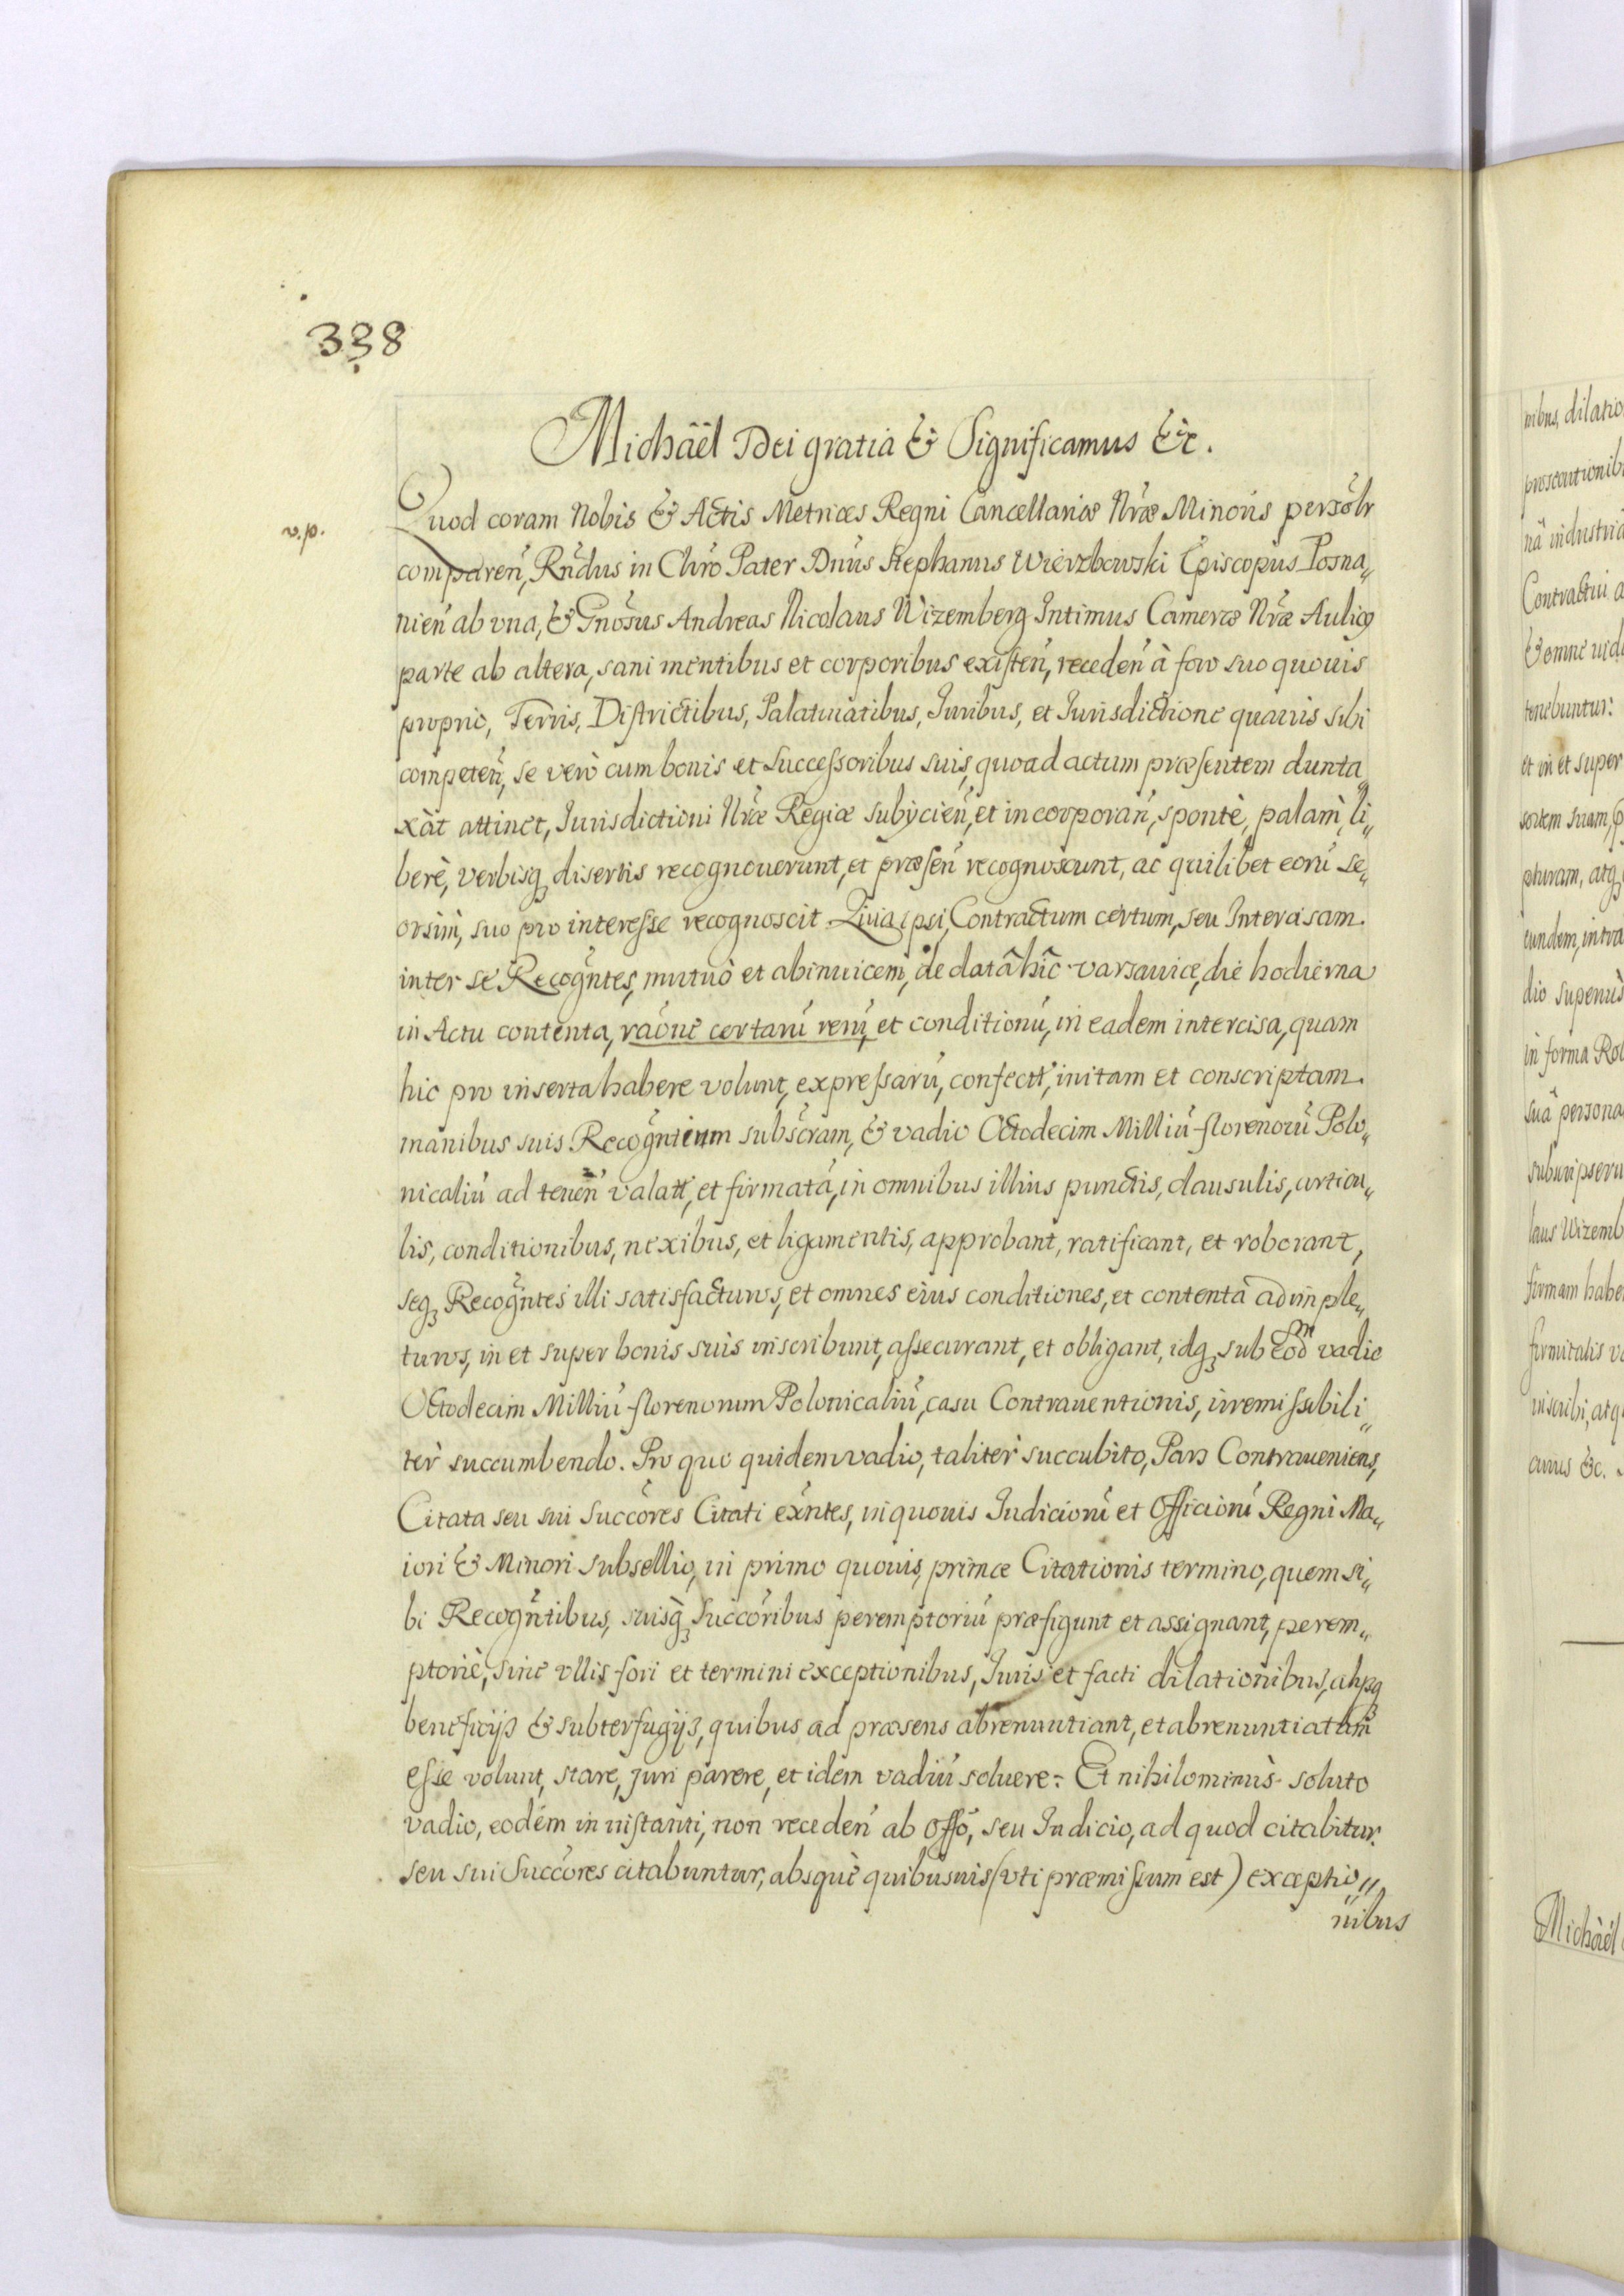 338
Michäël Dei gratia & Significamus &c.
v.p.
Quod coram Nobis & Actis Metrices Regni Cancellariæ Nræ Minoris persolr
comparen, Rndus in Chro Pater Dnus Stephanus Wierzbowski Episcopus Posna„
nien ab vna, & Gnosus Andreas Nicolaus Wizemberg Intimus Cameræ Nræ Aulicq
parte ab altera, sani mentibus et corporibus existen, receden à foro suo quouis
proprio, Terris, Districtibus, Palatinatibus, Iuribus, et Iurisdictione quauis sibi
competen, se verò cum bonis et Successoribus suis, quoad actum præsentem dunta„
xàt attinet, Iurisdictioni Nræ Regiæ subijcien, et incorporan, spontè, palam, li„
berè, verbisq disertis recognouerunt, et præsen recognoscunt, ac quilibet eorū se„
orsim, suo pro interesse recognoscit. Quia ipsi, Contractum certum, seu Intercisam
inter se Recogntes, mutuò et abinuicem, de datâ hîc Varsauiæ, die hodierna
in Actu contenta, raone certarū rerū, et conditionū, in eadem intercisa, quam
hic pro inserta habere volunt, expressarū, confectā, initam et conscriptam
manibus suis Recogntium subscram, & vadio Octodecim Milliū florenorū Polo„
nicaliū ad tenen valatā, et firmatā, in omnibus illius punctis, clausulis, articu„
lis, conditionibus, nexibus, et ligamentis, approbant, ratificant, et roborant,
seq Recogntes illi satisfacturos, et omnes eius conditiones, et contenta adimple„
turos, in et super bonis suis inscribunt, assecurant, et obligant, idq sub eodm vadio
Octodecim Milliū florenorum Polonicaliū, casu Contrauentionis, irremissibili„
tèr succumbendo. Pro quo quidem vadio, taliter succubito, Pars Contraueniens,
Citata seu sui Succores Citati exntes, in quouis Iudiciorū et Officiorū Regni Ma„
iori & Minori subsellio, in primo quouis, primæ Citationis termino, quem si„
bi Recogntibus, suisq Succoribus peremptoriū præfigunt et assignant, perem„
ptoriè, sine vllis fori et termini exceptionibus, Iuris et facti dilationibus, alysq
beneficijs & subterfugijs, quibus ad præsens abrenuntiant, et abrenuntiatum
esse volunt, stare, Juri parere, et idem vadiū soluere: Et nihilominùs soluto
vadio, eodem in instanti, non receden ab Offo, seu Iudicio, ad quod citabitur
seu sui Succores citabuntur, absquè quibusuis (vti præmissum est) exceptio„
nibus
nibus, dilatio
nâ industria
Contractui a
& omne
tenebuntur:
et in et super
sortem suam,
eundem, intra
dio
in forma
suâ persona
laus Wizemb
firmam habe
firmitatis
inscribi, atq
&c.
Michäël